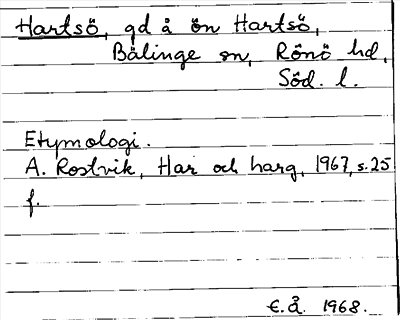 Hartsö, gd å ön Hartsö,
Bälinge sn, Rönö hd,
Söd. l.
Etymologi.
A. Rostvik, Har och harg, 1967, s. 25
f.
E.Å. 1968.